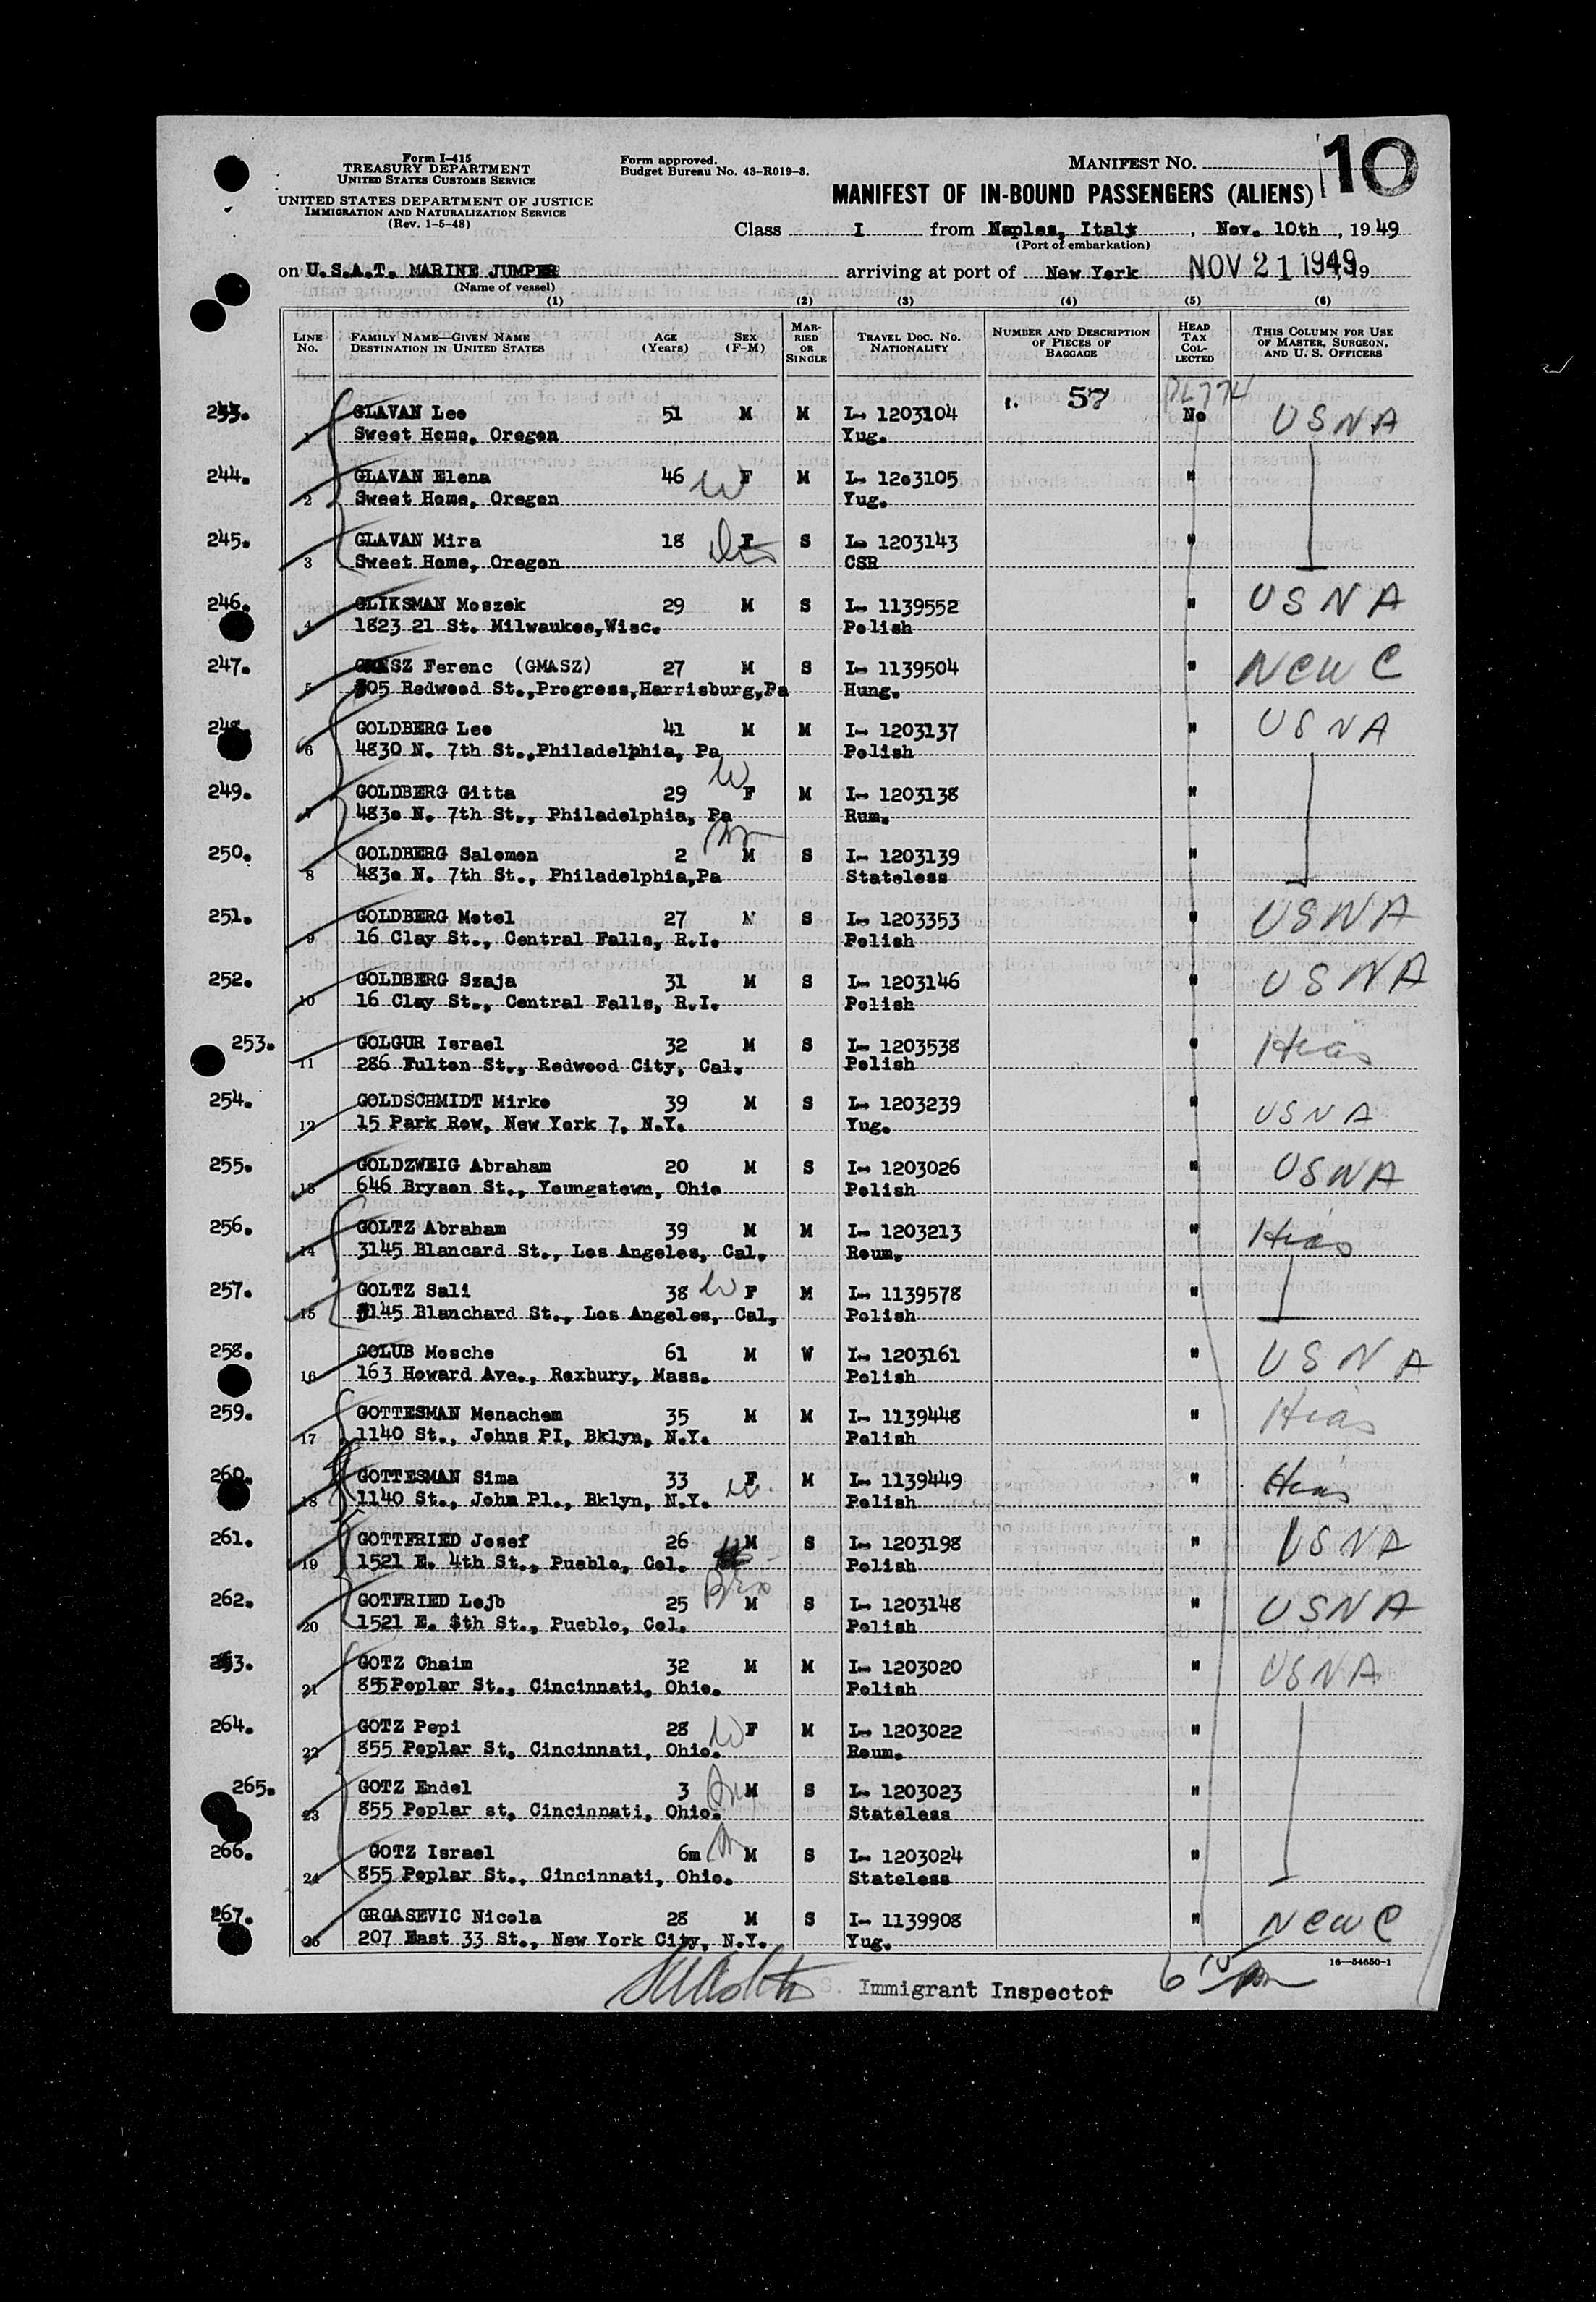 Form I-415
TREASURY DEPARTMENT
UNITED STATES CUSTOMS SERVICE
UNITED STATES DEPARTMENT OF JUSTICE
IMMIGRATION AND NATURALIZATION SERVICE
(Rev. 1-5-48)
Form approved.
Budget Bureau No. 43-R019-3.
MANIFEST NO. 10
MANIFEST OF IN-BOUND PASSENGERS (ALIENS)
Class I from Naples, Italy, Nov. 10th, 1949
(Port of embarkation)
on U.S.A.T. MARINE JUMPER arriving at port of New York NOV 21 1949, 19
(Name of vessel)
(1) (2) (3) (4) (5) (6)
LINE No. FAMILY NAME—GIVEN NAME DESTINATION IN UNITED STATES AGE (Years) SEX (F-M) MARRIED OR SINGLE TRAVEL DOC. NO. NATIONALITY NUMBER AND DESCRIPTION OF PIECES OF BAGGAGE HEAD TAX COLLECTED THIS COLUMN FOR USE OF MASTER, SURGEON, AND U. S. OFFICERS
57 PL774
1 GLAVAN Leo 51 M M I- 1203104 No USNA
Sweet Home, Oregon Yug.
244. 2 GLAVAN Elena 46 W F M I- 12o3105 "
Sweet Home, Oregon Yug.
245. 3 GLAVAN Mira 18 F S I- 1203143 "
Sweet Home, Oregon CSR
246. 4 GLIKSMAN Moszek 29 M S I- 1139552 " USNA
1823 21 St. Milwaukee,Wisc. Polish
247. 5 Ferenc (GMASZ) 27 M S I- 1139504 " New C
305 Redwood St.,Progress,Harrisburg,Pa Hung.
248. 6 GOLDBERG Leo 41 M M I- 1203137 " USNA
4830 N. 7th St.,Philadelphia, Pa Polish
249. 7 GOLDBERG Gitta 29 W F M I- 1203138 "
483o N. 7th St., Philadelphia, Pa Rum.
250. 8 GOLDBERG Salomon 2 M S I- 1203139 "
483o N. 7th St., Philadelphia,Pa Stateless
251. 9 GOLDBERG Motel 27 M S I- 1203353 " USNA
16 Clay St., Central Falls, R.I. Polish
252. 10 GOLDBERG Szaja 31 M S I- 1203146 " USNA
16 Clay St., Central Falls, R.I. Polish
253. 11 GOLGUR Israel 32 M S I- 1203538 " Hias
286 Fulton St., Redwood City, Cal. Polish
254. 12 GOLDSCHMIDT Mirko 39 M S I- 1203239 " USNA
15 Park Row, New York 7, N.Y. Yug.
255. 13 GOLDZWEIG Abraham 20 M S I- 1203026 " USNA
646 Bryson St., Youngstown, Ohio Polish
256. 14 GOLTZ Abraham 39 M M I- 1203213 " Hias
3145 Blancard St., Los Angeles, Cal. Roum.
257. 15 GOLTZ Sali 38 W F M I- 1139578 "
3145 Blanchard St., Los Angeles, Cal, Polish
258. 16 GOLUB Mosche 61 M W I- 1203161 " USNA
163 Howard Ave., Roxbury, Mass. Polish
259. 17 GOTTESMAN Menachem 35 M M I- 1139448 " Hias
1140 St., Johns PI, Bklyn, N.Y. Polish
260. 18 GOTTESMAN Sima 33 W. F M I- 1139449 " Hias
1140 St., John Pl., Bklyn, N.Y. Polish
261. 19 GOTTFRIED Josef 26 M S I- 1203198 " USNA
1521 E. 4th St., Pueblo, Col. Polish
262. 20 GOTFRIED Lejb 25 Bro M S I- 1203148 " USNA
1521 E. $th St., Pueblo, Col. Polish
263. 21 GOTZ Chaim 32 M M I- 1203020 " USNA
855Poplar St., Cincinnati, Ohio. Polish
264. 22 GOTZ Pepi 28 W F M I- 1203022 "
855 Poplar St, Cincinnati, Ohio. Roum.
265. 23 GOTZ Endel 3 M S I- 1203023 "
855 Poplar st, Cincinnati, Ohio. Stateless
266. 24 GOTZ Israel 6m M S I- 1203024 "
855 Poplar St., Cincinnati, Ohio. Stateless
267. GRGASEVIC Nicola 28 M S I- 1139908 " New C
207 East 33 St., New York City, N.Y. Yug.
16—54650-1
Immigrant Inspector